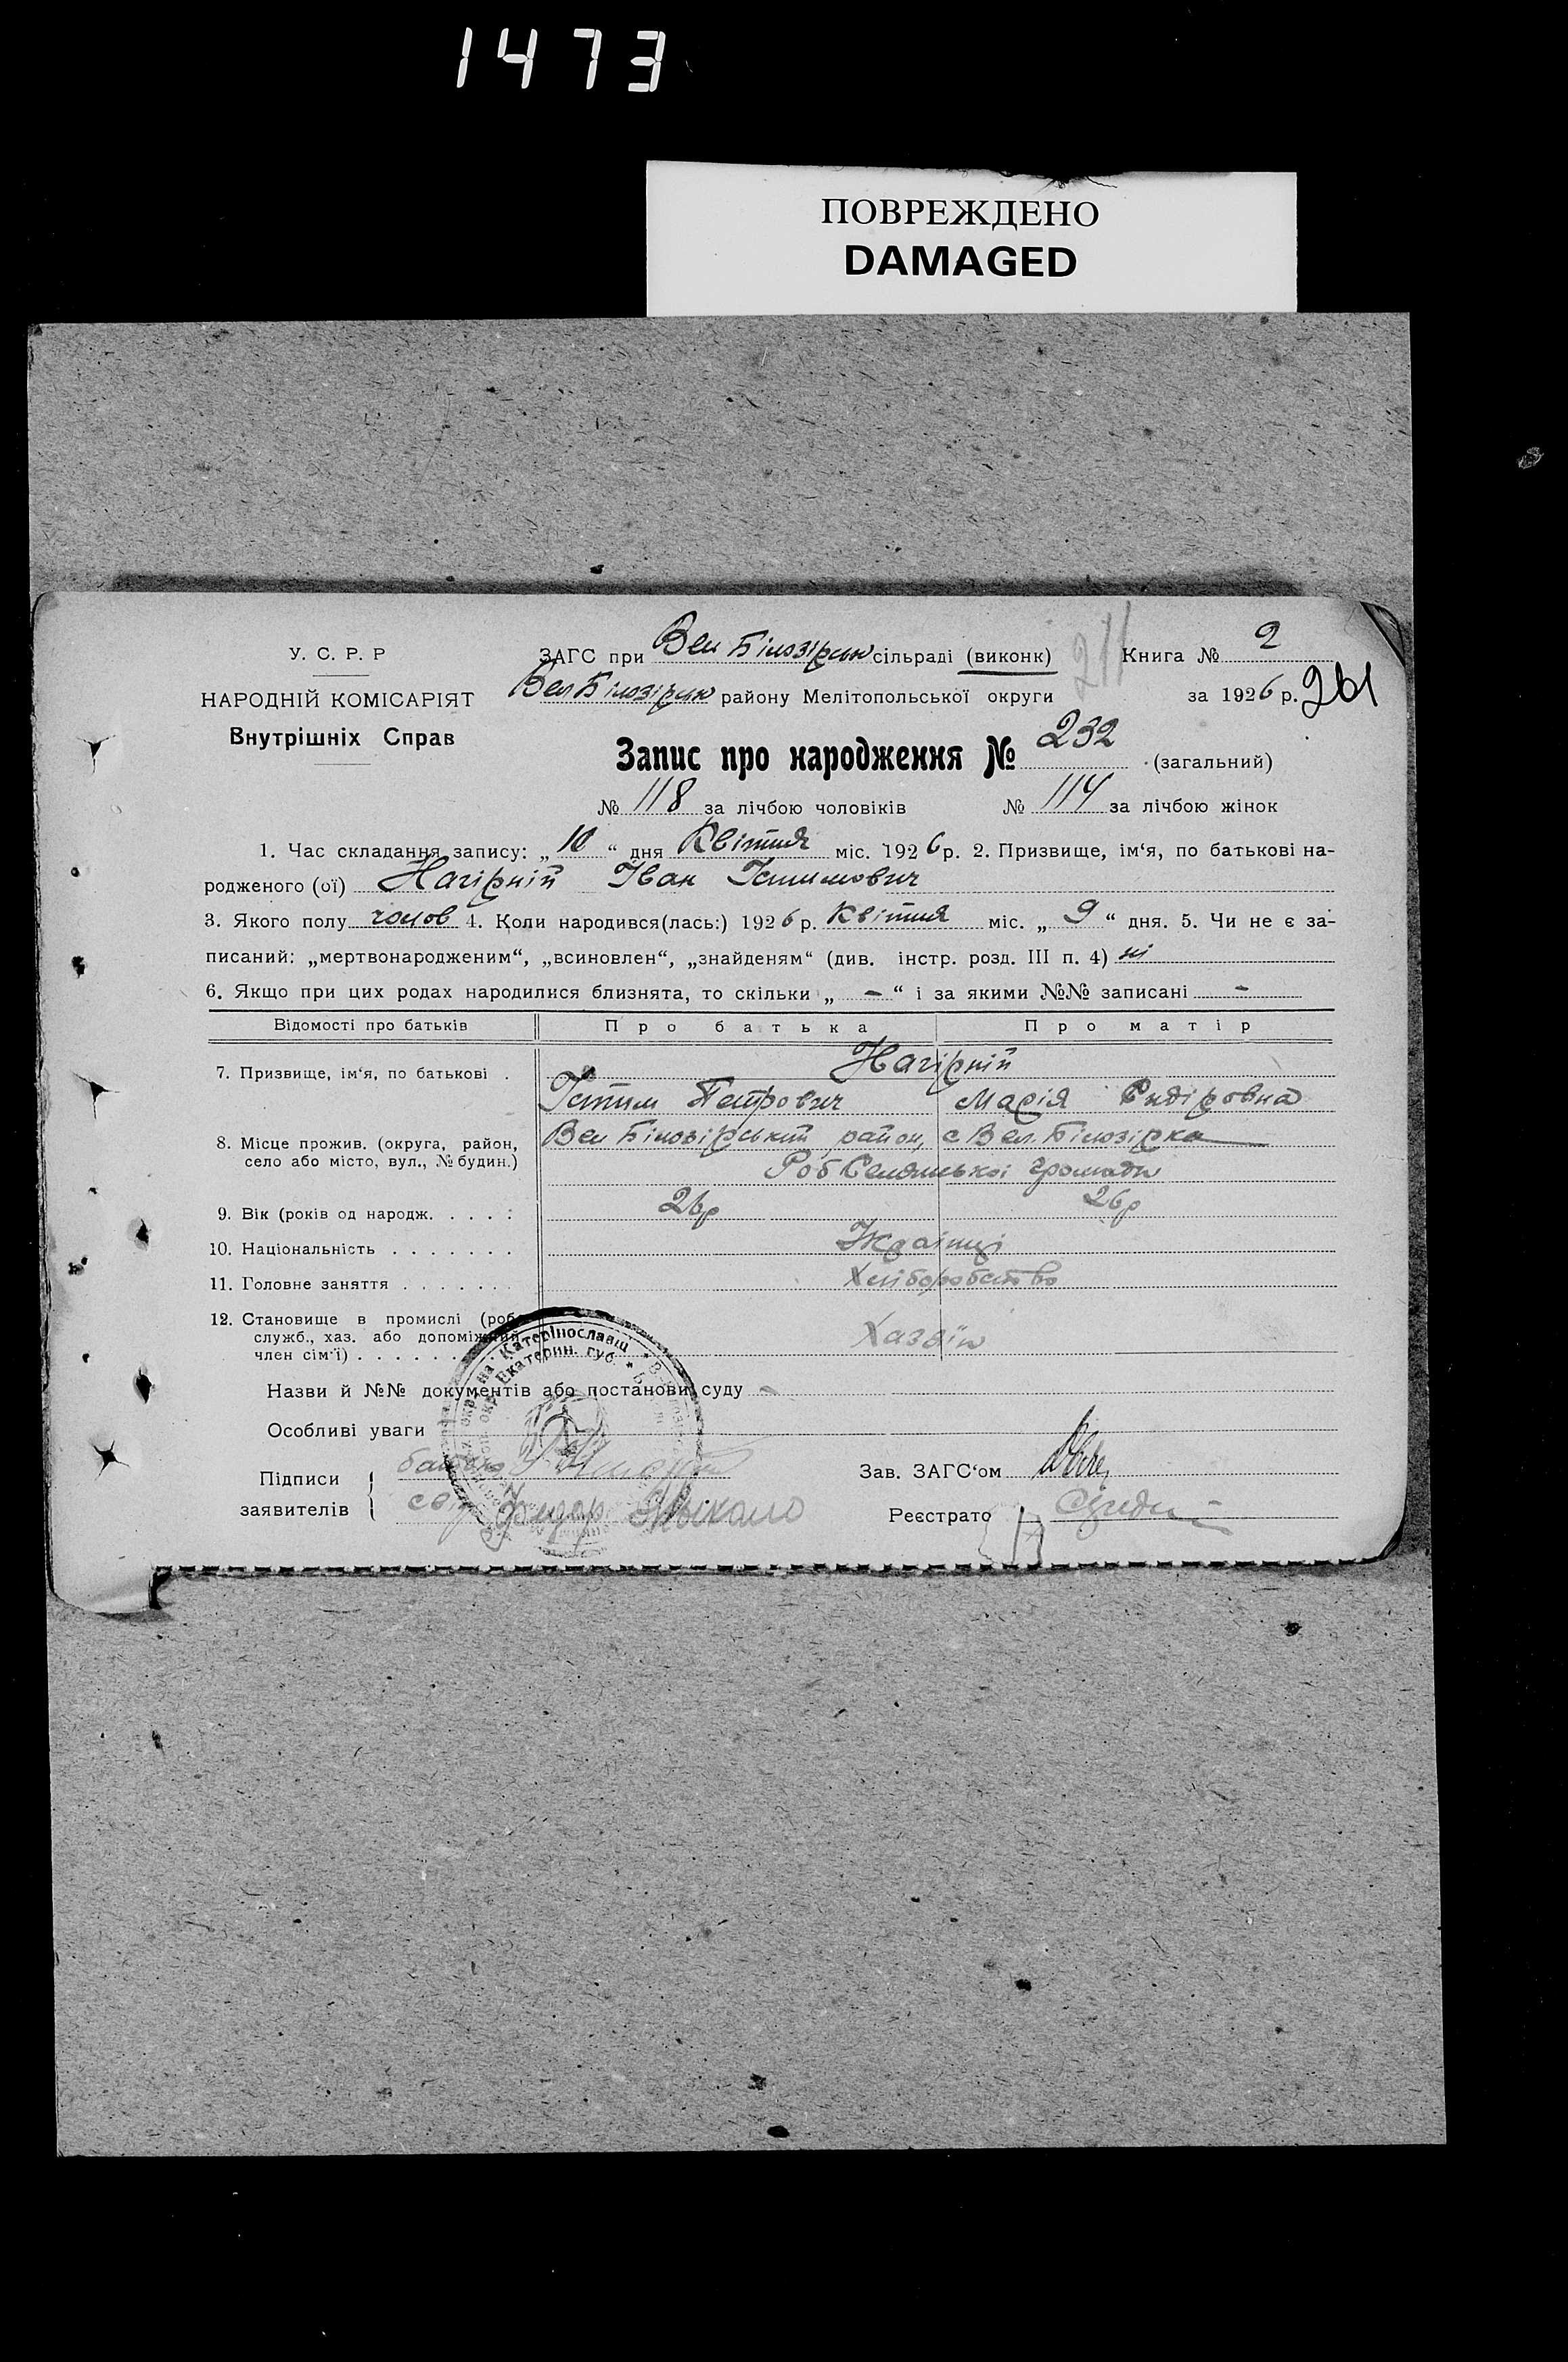 1473
ПОВРЕЖДЕНО
DAMAGED
У. С. Р. Р
НАРОДНІЙ КОМІСАРІЯТ
Внутрішніх Справ
ЗАГС при Вел Білозірськ сільраді (виконк)
211
Книга № 2
Вел Білозірськ району Мелітопольської округи
за 1926 р. 261
Запис про народження № 232 (загальний)
№ 118 за лічбою чоловіків № 114 за лічбою жінок
1. Час складання запису: „10“ дня Квітня міс. 1926 р. 2. Призвище, ім‘я, по батькові на-
родженого (ої) Нагірній Іван Устимович
3. Якого полу чолов 4. Коли народився(лась:) 1926 р. Квітня міс. „9“ дня. 5. Чи не є за-
писаний: „мертвонародженим“, „всиновлен“, „знайденям“ (див. інстр. розд. III п. 4) ні
6. Якщо при цих родах народилися близнята, то скільки „ - “ і за якими №№ записані -
Відомості про батьків Про батька Про матір
7. Призвище, ім‘я, по батькові . Нагірній
Устим Петрович Марія
8. Місце прожив. (округа, район, Вел Білозірський район, с Вел. Білозірка
село або місто, вул., № будин.) Роб Селянської громади
9. Вік (років од народж. . . . : 26р 26р
10. Національність . . . . . . . Українці
11. Головне заняття . . . . . . . Хліборобство
12. Становище в промислі (роб.
служб., хаз. або допоміжний
член сім‘ї) . . . . . . Хазяїн
Назви й №№ документів або постанови суду -
Особливі уваги
Підписи
заявителів
батько
Зав. ЗАГС‘ом
Реєстрато